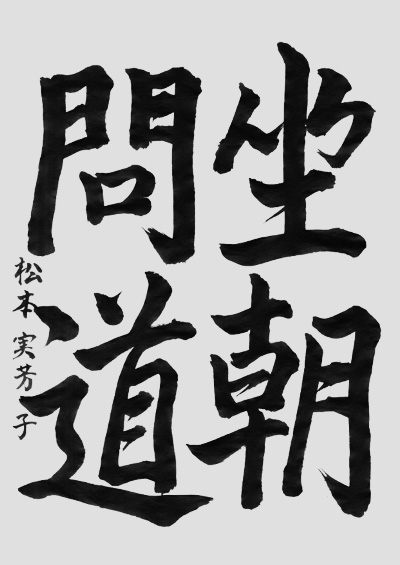 坐朝
問道
松本実芳子